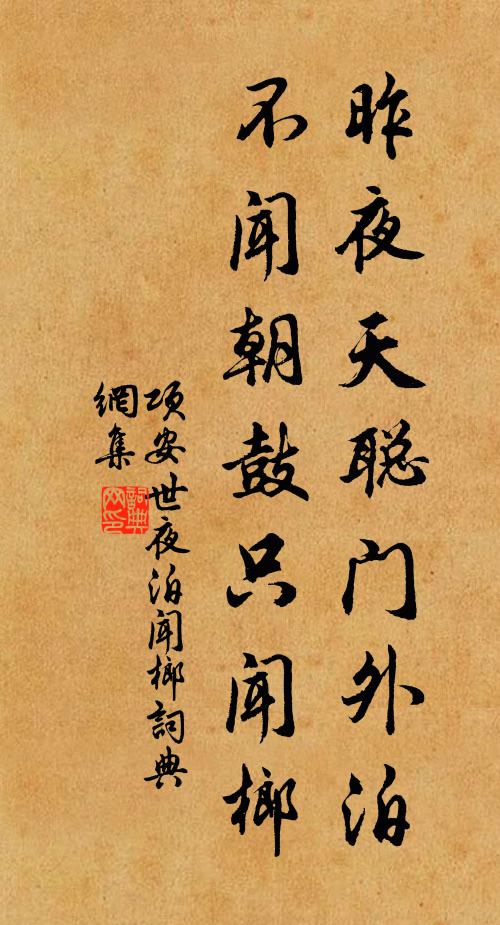 昨夜天聪门外泊
不闻朝鼓只闻榔
项安世夜泊闻榔詞典
網集
詞典网印